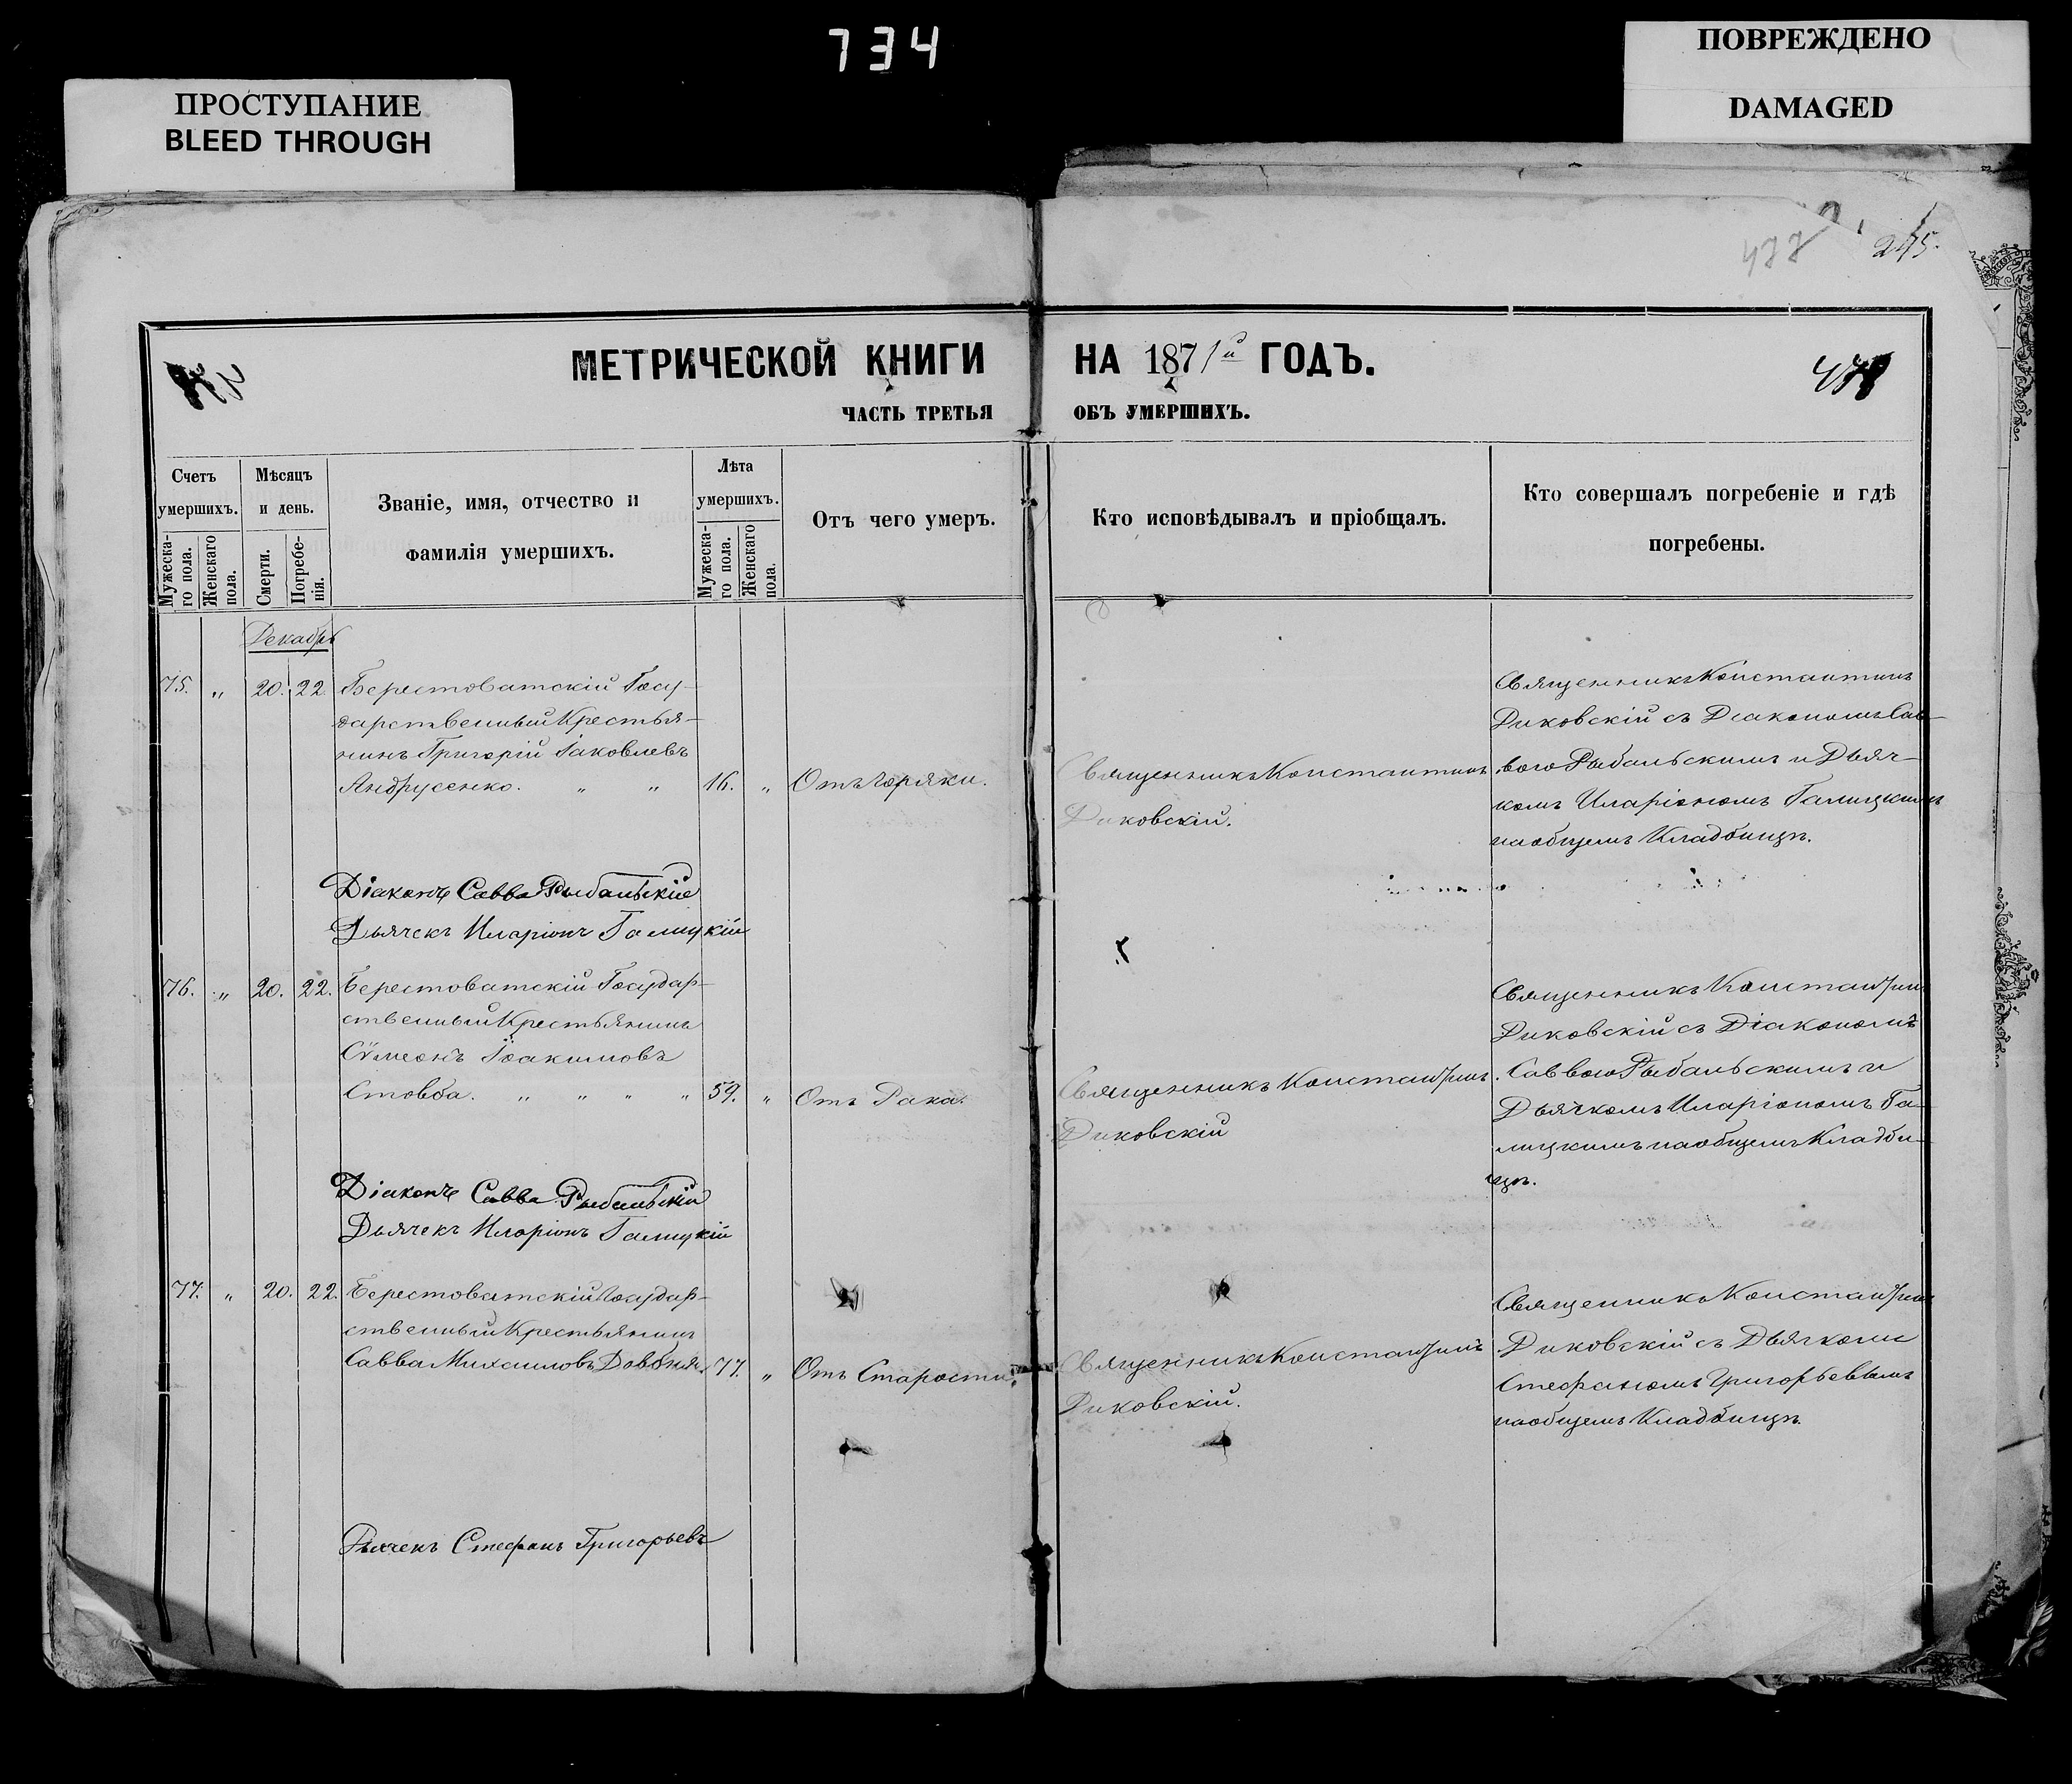 734
ПРОСТУПАНИЕ
BLEED THROUGH
ПОВРЕЖДЕНО
DAMAGED
477
245.
МЕТРИЧЕСКОЙ КНИГИ НА 1871й ГОДЪ.
ЧАСТЬ ТРЕТЬЯ ОБЪ УМЕРШИХЪ.
Счетъ умершихъ.
Мужеска-го пола.
Женскаго пола.
Мѣсяцъ и день.
Смерти.
Погребе-нія.
Званіе, имя, отчество и
фамилія умершихъ.
Лѣта умершихъ.
Мужеска-го пола.
Женскаго пола.
Отъ чего умеръ.
Кто исповѣдывалъ и пріобщалъ.
Кто совершалъ погребеніе и гдѣ
погребены.
Декабрь
75. " 20. 22. Берестоватскій Госу-
дарственный Крестья-
нинъ Григорій Іаковлевъ
Андрусенко. " " 16. " Отъ Горячки.
Священникъ Константинъ
Диковскій.
Священникъ Константинъ
Диковскій съ Діакономъ Сав-
вою Рыбальскимъ и Дьяч-
комъ Иларіономъ Галицкимъ
на общемъ Кладбищѣ.
Діаконъ Савва Рыбальскій
Дьячекъ Иларіонъ Галицкій
76. " 20. 22. Берестоватскій Государ-
ственный Крестьянинъ
Сѵмеонъ Іоакимовъ
Стовба. " " " " 59. " Отъ Рака.
Священникъ Константинъ
Диковскій
Священникъ Константинъ
Диковскій съ Діакономъ
Саввою Рыбальскимъ и
Дьячкомъ Иларіономъ Га-
лицкимъ на общемъ Кладби-
щѣ.
Діаконъ Савва Рыбальскій
Дьячекъ Иларіонъ Галицкій
77. " 20. 22. Берестоватскій Государ-
ственный Крестьянинъ
Савва Михаиловъ Довбня. 77. " Отъ Старости.
Священникъ Константинъ
Диковскій.
Священникъ Константинъ
Диковскій съ Дьячкомъ
Стефаномъ Григорьевымъ
на общемъ Кладбищѣ.
Дьячекъ Стефанъ Григорьевъ